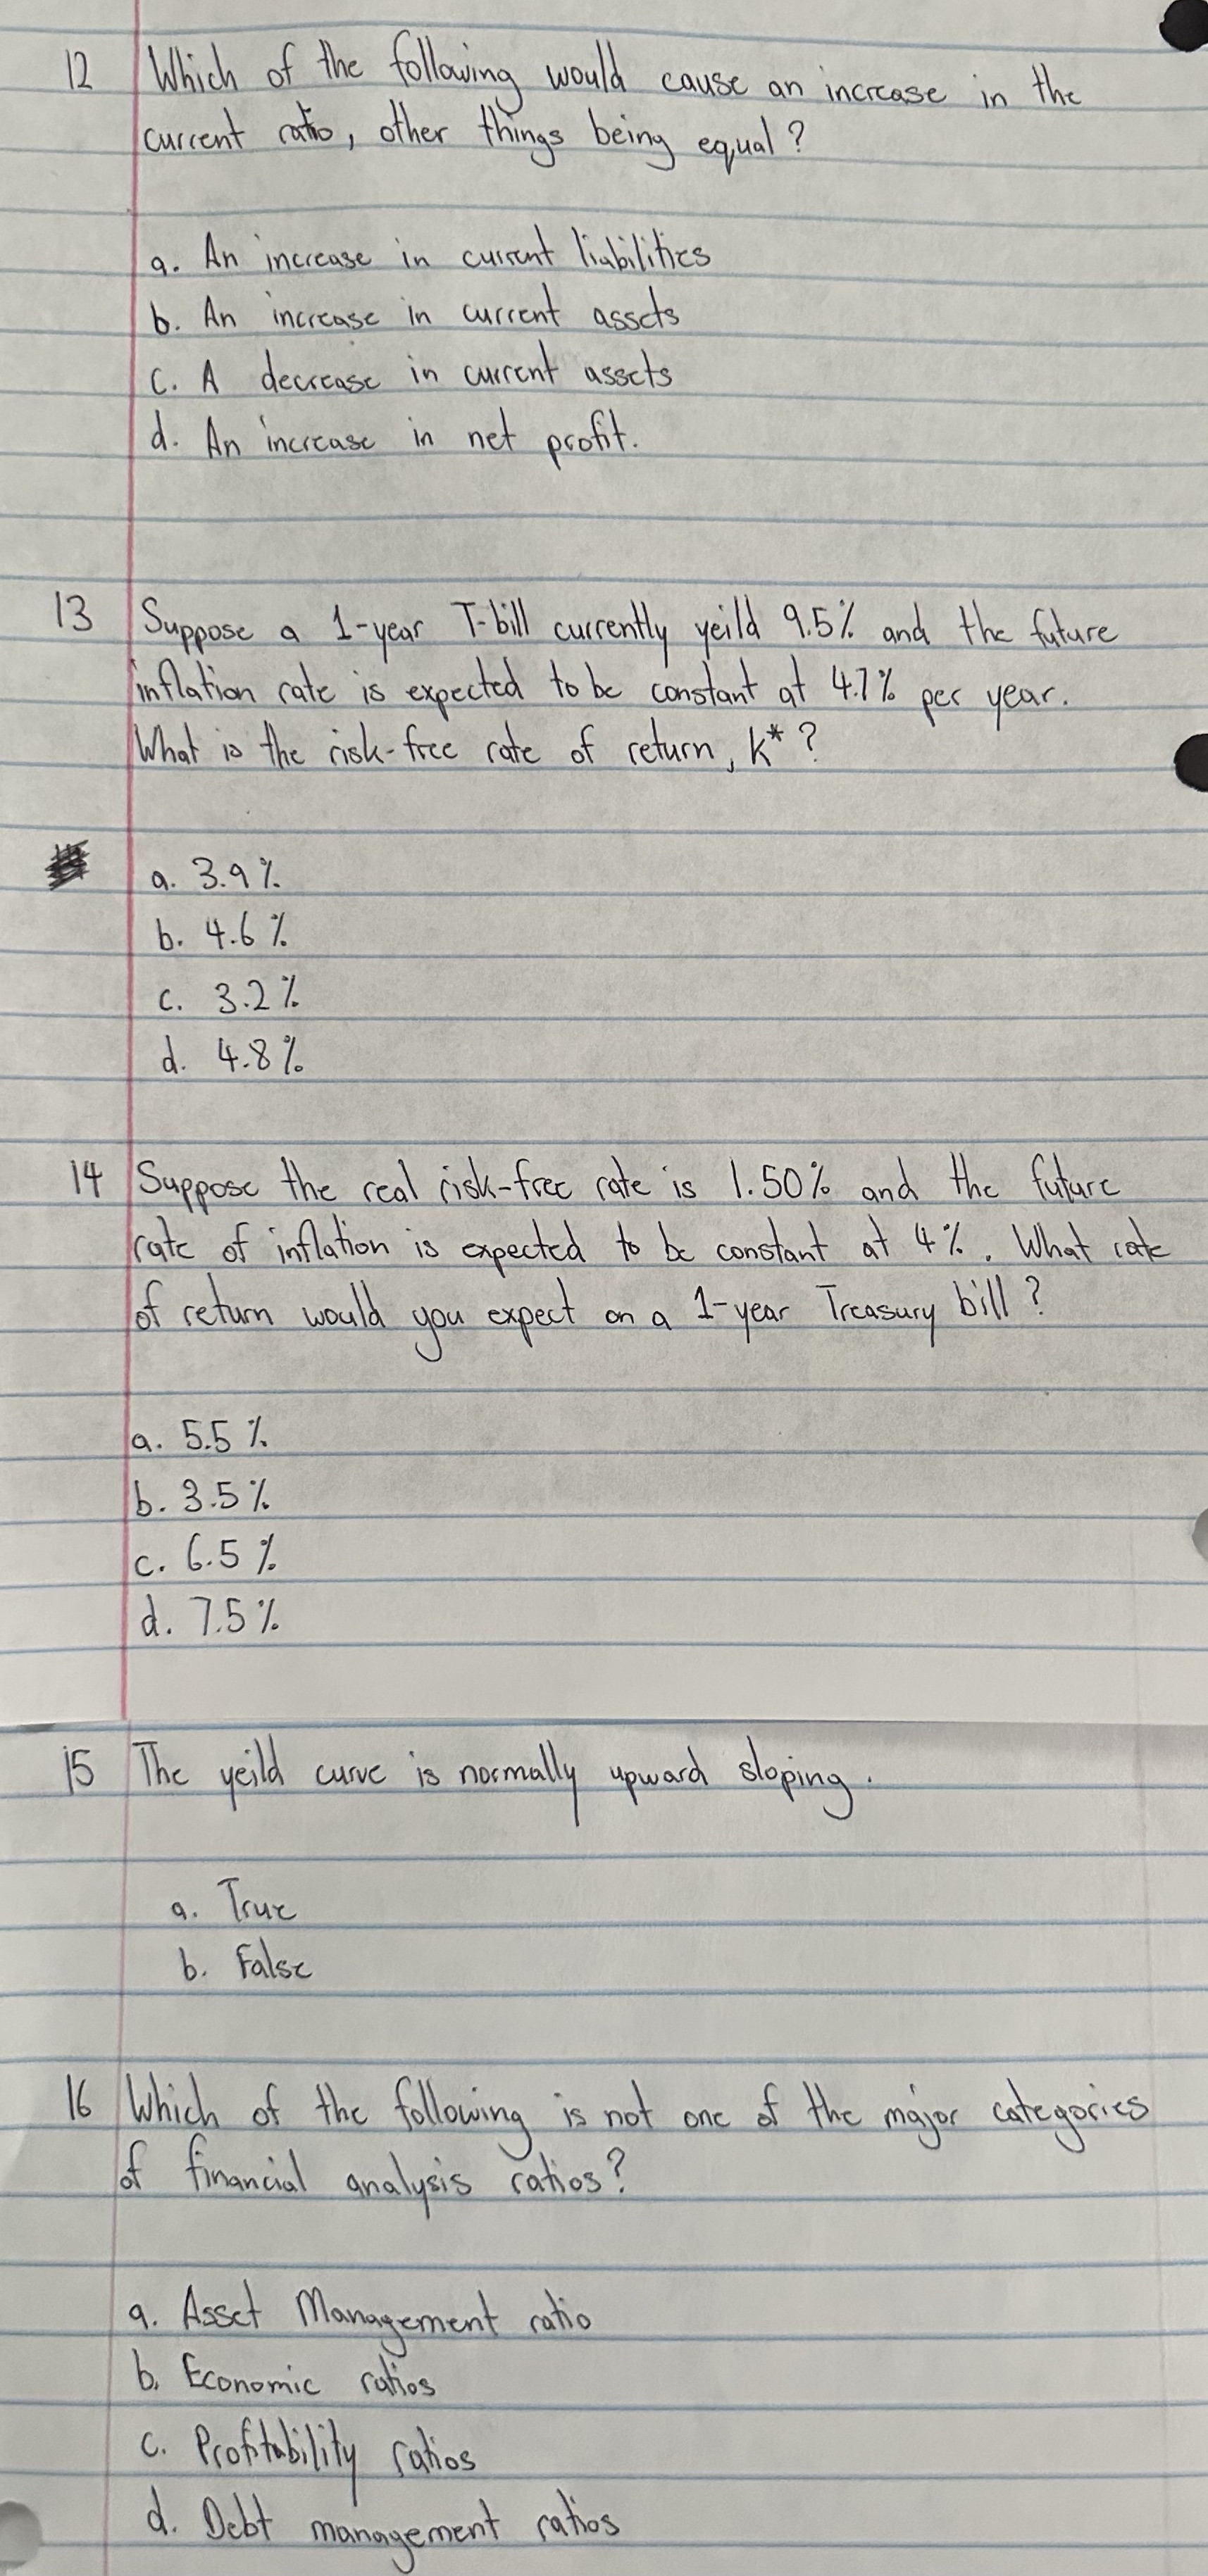 12 Which of the following would cause an increase in the
current ratio, other things being equal?
a. An increase in current liabilities
b. An increase in current assets
c. A decrease in current assets
d. An increase in net profit.
13 Suppose a 1-year T-bill currently yeild 9.5% and the future
inflation rate is expected to be constant at 4.7% per year.
What is the risk-free rate of return, k*?
a. 3.9%
b. 4.6%
c. 3.2%
d. 4.8%
14 Suppose the real risk-free rate is 1.50% and the future
rate of inflation is expected to be constant at 4%. What rate
of return would you expect on a 1-year Treasury bill?
a. 5.5%
b. 3.5%
c. 6.5%
d. 7.5%
15 The yeild curve is normally upward sloping.
a. True
b. False
16 Which of the following is not one of the major categories
of financial analysis ratios?
a. Asset Management ratio
b. Economic ratios
c. Profitability ratios
d. Debt management ratios